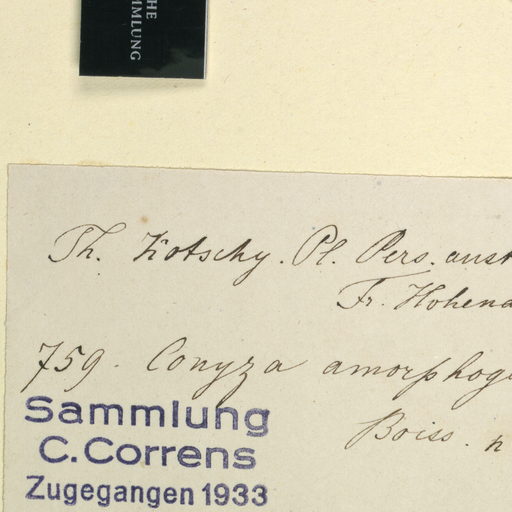 HE
MMLUNG
Th. Kotschy. Pl. Pers. aust
Fr. Hohena
759. Conyza amorphog
Boiss. n
Sammlung
C. Correns
Zugegangen 1933